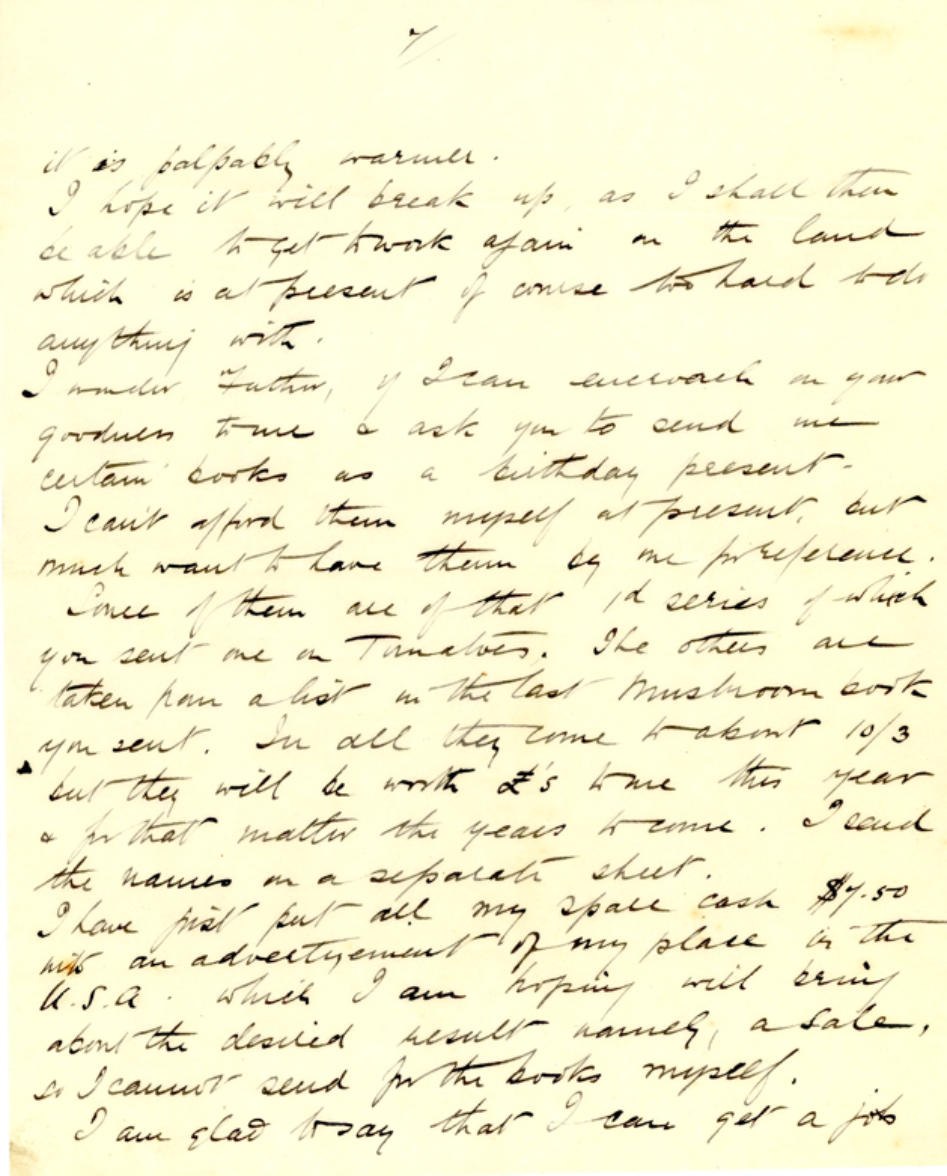 7/
it is palpably warmer.
I hope it will break up, as I shall then
be able to get to work again on the land
which is at present of course too hard to do
anything with.
I wonder, Father, if I can encroach on your
goodness to me & ask you to send me
certain books as a birthday present.
I can't afford them myself at present, but
much want to have them by me for reference.
Some of them are of that 1d series of which
you sent me on Tomatoes. The others are
taken from a list in the last Mushroom book
you sent. In all they come to about 10/3
but they will be worth £'s to me this year
& for that matter the years to come. I send
the names on a separate sheet.
I have just put all my spare cash $7.50
into an advertisement of my place in the
U.S.A. which I am hoping will bring
about the desired result namely, a sale,
so I cannot send for the books myself.
I am glad to say that I can get a job